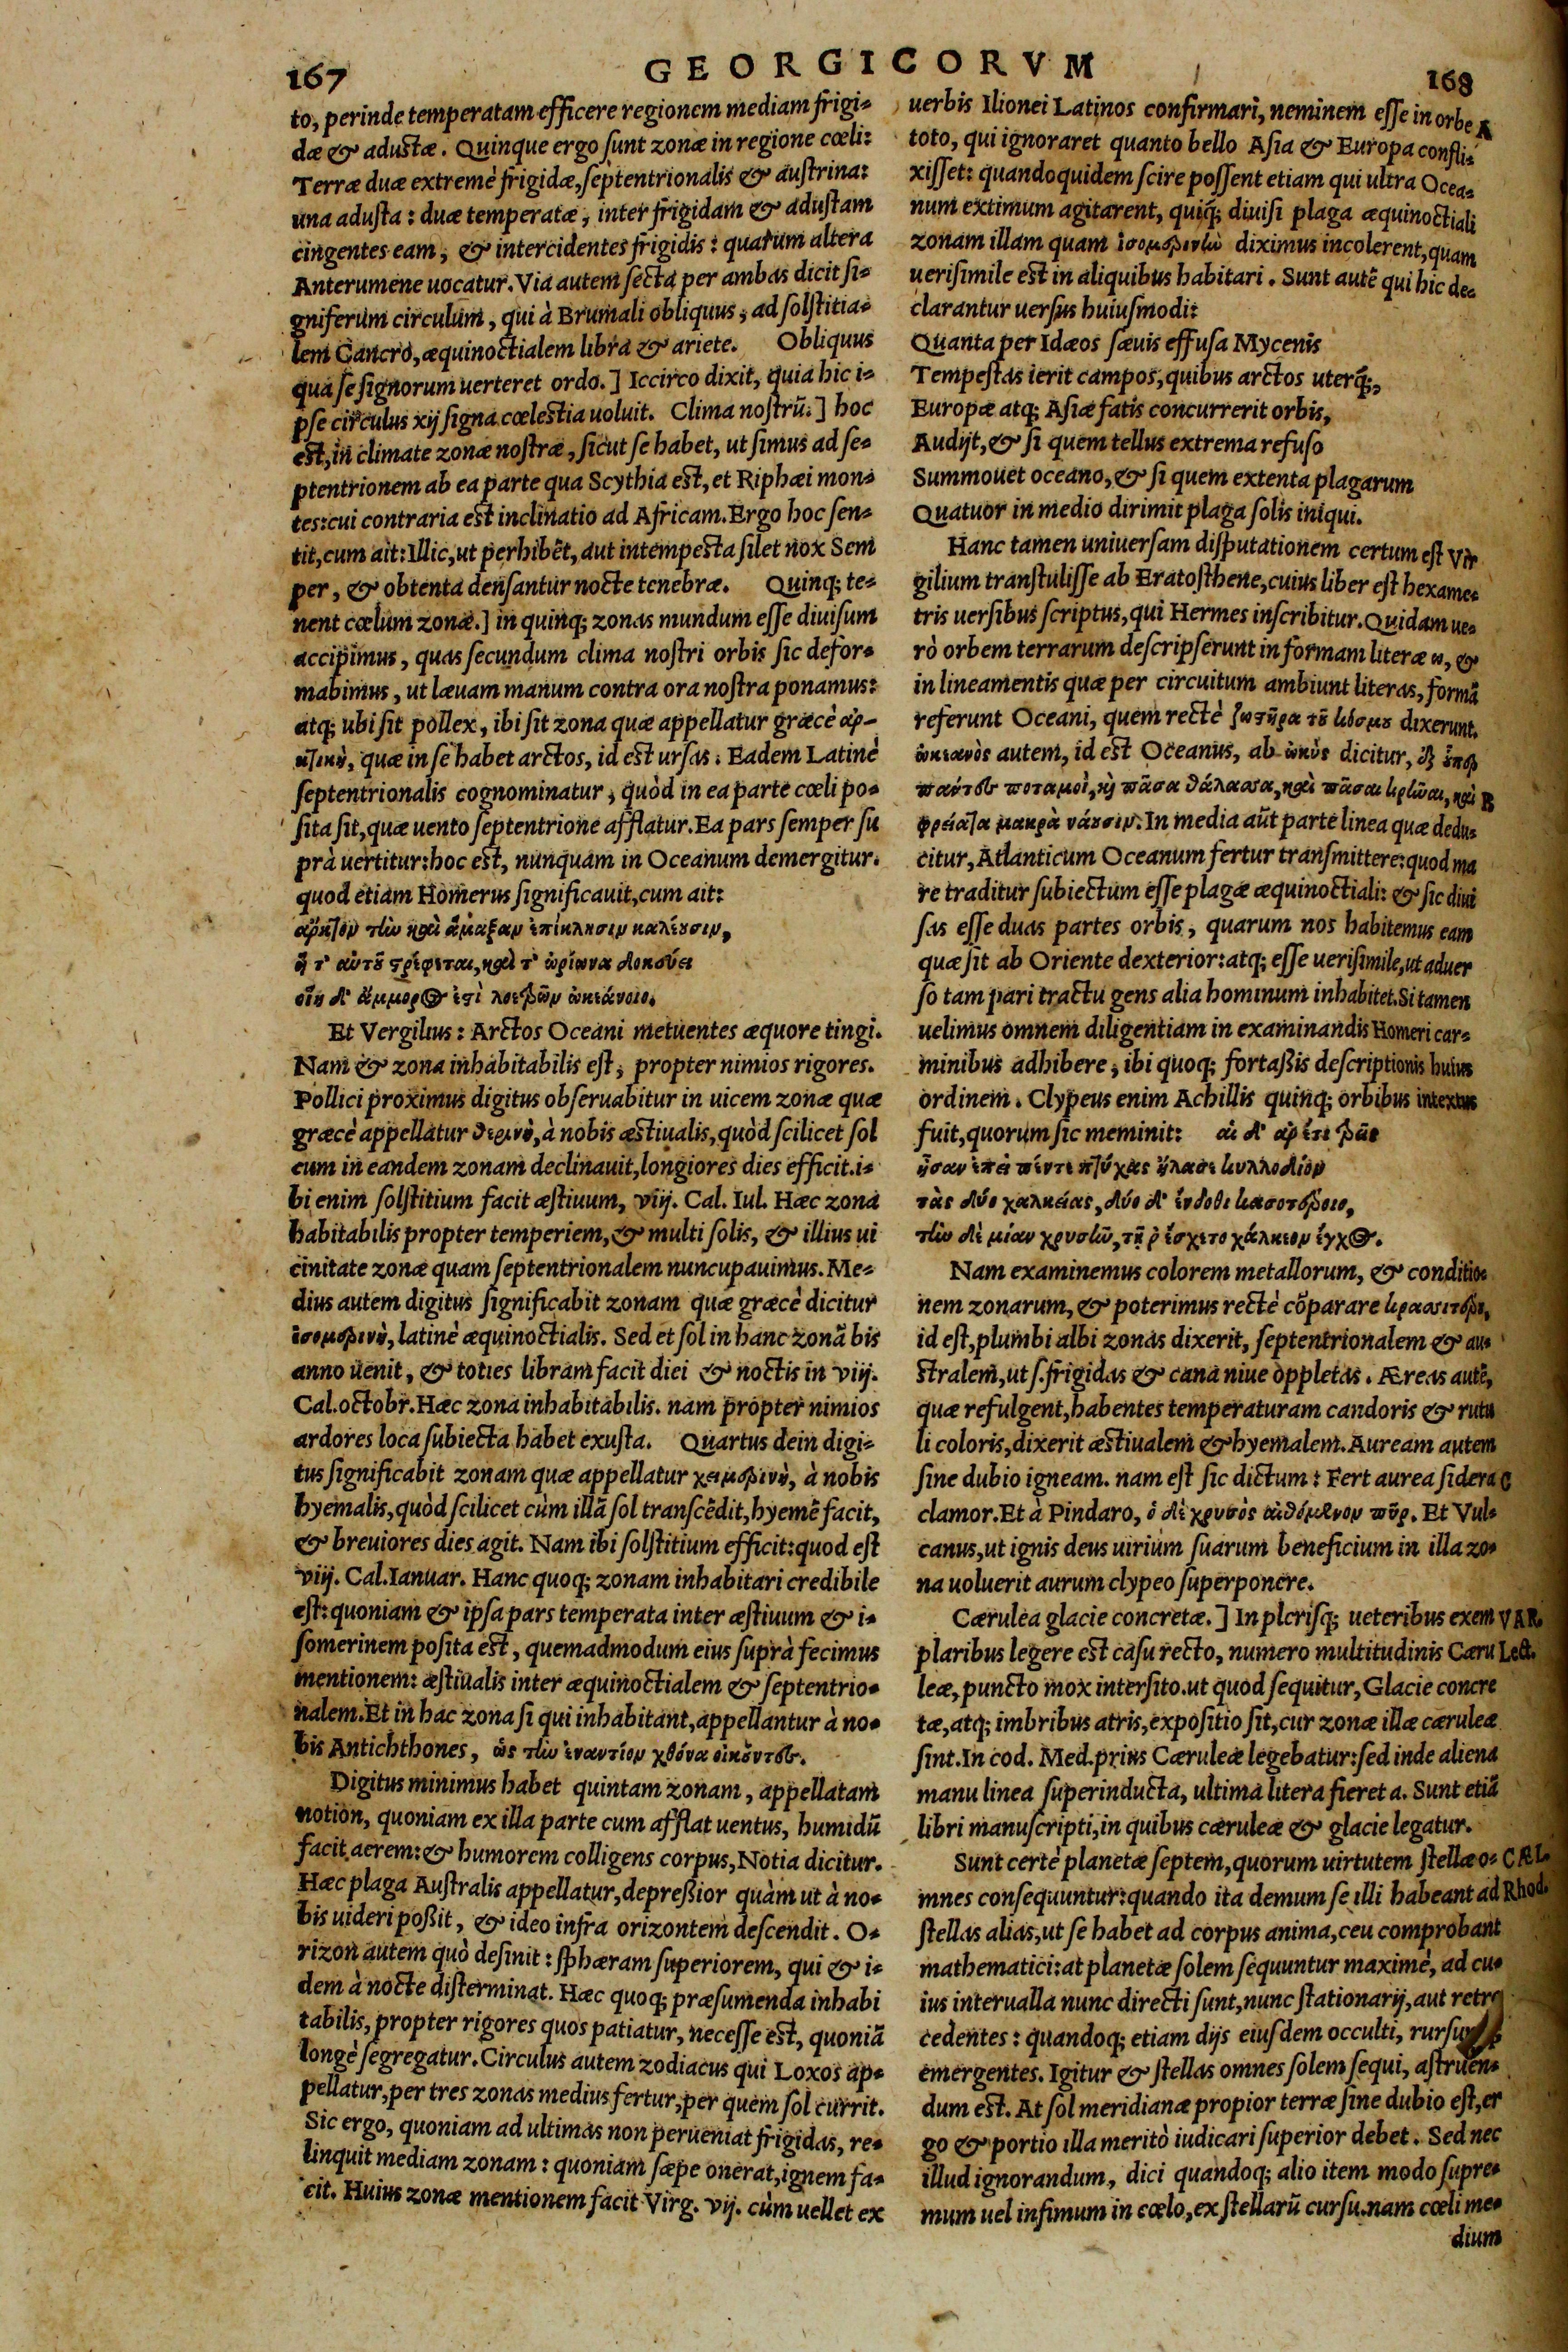 167
GEORGICORVM
168
to, perinde temperatam efficere regionem mediam frigi-
dæ & adustæ. Quinque ergo sunt zonæ in regione cœli:
Terræ duæ extremè frigidæ, septentrionalis & austrina:
una adusta: duæ temperatæ, inter frigidam & adustam
cingentes eam, & intercidentes frigidis: quarum altera
Anterumene uocatur. Via autem secta per ambas dicit si-
gniferum circulum, qui à Brumali obliquus, ad solstitia-
lem Cancro, æquinoctialem libra & ariete. Obliquus
qua se signorum uerteret ordo.] Iccirco dixit, quia hic i-
pse circulus xij signa cœlestia uoluit. Clima nostrũ.] hoc
est, in climate zonæ nostræ, sicut se habet, ut simus ad se-
ptentrionem ab ea parte qua Scythia est, et Riphæi mon-
tes: cui contraria est inclinatio ad Africam. Ergo hoc sen-
tit, cum ait: Illic, ut perhibẽt, aut intempesta silet nox Sem
per, & obtenta densantur nocte tenebræ. Quinq; te-
nent cœlum zonæ.] in quinq; zonas mundum esse diuisum
accipimus, quas secundum clima nostri orbis sic defor-
mabimus, ut læuam manum contra ora nostra ponamus:
atq; ubi sit pollex, ibi sit zona quæ appellatur græcè ἀρ-
κτικὴ, quæ in se habet arctos, id est ursas. Eadem Latinè
septentrionalis cognominatur, quòd in ea parte cœli po-
sita sit, quæ uento septentrione afflatur. Ea pars semper su
prà uertitur: hoc est, nunquam in Oceanum demergitur.
quod etiam Homerus significauit, cum ait:
ἄρκτον τὴν καὶ ἅμαξαν ἐπίκλησιν καλέουσιν,
ἥ τ' αὐτοῦ στρέφεται, καὶ τ' ὠρίωνα δοκεύει
οἴη δ' ἄμμορος ἐστὶ λοετρῶν ὠκεάνοιο.
Et Vergilius: Arctos Oceani metuentes æquore tingi.
Nam & zona inhabitabilis est, propter nimios rigores.
Pollici proximus digitus obseruabitur in uicem zonæ quæ
græcè appellatur θερινὴ, à nobis æstiualis, quòd scilicet sol
cum in eandem zonam declinauit, longiores dies efficit. i-
bi enim solstitium facit æstiuum, viij. Cal. Iul. Hæc zona
habitabilis propter temperiem, & multi solis, & illius ui
cinitate zonæ quam septentrionalem nuncupauimus. Me-
dius autem digitus significabit zonam quæ græcè dicitur
ἰσομερινὴ, latinè æquinoctialis. Sed et sol in hanc zonã bis
anno uenit, & toties libram facit diei & noctis in viij.
Cal. octobr. Hæc zona inhabitabilis. nam propter nimios
ardores loca subiecta habet exusta. Quartus dein digi-
tus significabit zonam quæ appellatur χειμερινὴ, à nobis
hyemalis, quòd scilicet cùm illã sol transcẽdit, hyemẽ facit,
& breuiores dies agit. Nam ibi solstitium efficit: quod est
viij. Cal. Ianuar. Hanc quoq; zonam inhabitari credibile
est: quoniam & ipsa pars temperata inter æstiuum & i-
somerinem posita est, quemadmodum eius suprà fecimus
mentionem: æstiualis inter æquinoctialem & septentrio-
nalem. Et in hac zona si qui inhabitant, appellantur à no-
bis Antichthones, ὡς τὴν ἐναντίον χθόνα οἰκοῦντες.
Digitus minimus habet quintam zonam, appellatam
notion, quoniam ex illa parte cum afflat uentus, humidũ
facit aerem: & humorem colligens corpus, Notia dicitur.
Hæc plaga Australis appellatur, depreßior quàm ut à no-
bis uideri poßit, & ideo infra orizontem descendit. O-
rizon autem quò desinit: sphæram superiorem, qui & i-
dem à nocte disterminat. Hæc quoq; præsumenda inhabi
tabilis, propter rigores quos patiatur, necesse est, quoniã
longè segregatur. Circulus autem zodiacus qui Loxos ap-
pellatur, per tres zonas medius fertur, per quem sol currit.
Sic ergo, quoniam ad ultimas non perueniat frigidas, re-
linquit mediam zonam: quoniam sæpe onerat, ignem fa-
cit. Huius zonæ mentionem facit Virg. vij. cùm uellet ex
uerbis Ilionei Latinos confirmari, neminem esse in orbe A
toto, qui ignoraret quanto bello Asia & Europa confli-
xisset: quandoquidem scire possent etiam qui ultra Ocea-
num extimum agitarent, quiq; diuisi plaga æquinoctiali
zonam illam quam ἰσομερινὴν diximus incolerent, quam
uerisimile est in aliquibus habitari. Sunt autẽ qui hic de-
clarantur uersus huiusmodi:
Quanta per Idæos sæuis effusa Mycenis
Tempestas ierit campos, quibus arctos uterq;,
Europæ atq; Asiæ fatis concurrerit orbis,
Audijt, & si quem tellus extrema refuso
Summouet oceano, & si quem extenta plagarum
Quatuor in medio dirimit plaga solis iniqui.
Hanc tamen uniuersam disputationem certum est Vir
gilium transtulisse ab Eratosthene, cuius liber est hexame-
tris uersibus scriptus, qui Hermes inscribitur. Quidam ue-
rò orbem terrarum descripserunt in formam literæ ω, &
in lineamentis quæ per circuitum ambiunt literas, formã
referunt Oceani, quem rectè ζωστῆρα τοῦ κόσμου dixerunt.
ὠκεανὸς autem, id est Oceanus, ab ὠκὺς dicitur, ἐξ ὅπερ
παύτες ποταμοὶ, καὶ πᾶσα θάλασσα, καὶ πᾶσαι κρῆναι, καὶ B
φρείατα μακρὰ νάουσιν. In media aũt parte linea quæ dedu-
citur, Atlanticum Oceanum fertur transmittere: quod ma
re traditur subiectum esse plagæ æquinoctiali: & sic diui
sas esse duas partes orbis, quarum nos habitemus eam
quæ sit ab Oriente dexterior: atq; esse uerisimile, ut aduer
so tam pari tractu gens alia hominum inhabitet. Si tamen
uelimus omnem diligentiam in examinandis Homeri car-
minibus adhibere, ibi quoq; fortaßis descriptionis huius
ordinem. Clypeus enim Achillis quinq; orbibus intextus
fuit, quorum sic meminit:
ἦσαν ἐπεὶ πέντε πτύχας ἤλασε κυλλοδίων
τὰς δύο χαλκείας, δύο δ' ἔνδοθι κασσιτέροιο,
τὴν δὲ μίαν χρυσῆν, τῇ ῥ' ἔσχετο χάλκεον ἔγχος.
Nam examinemus colorem metallorum, & conditio-
nem zonarum, & poterimus rectè cõparare
id est, plumbi albi zonas dixerit, septentrionalem & au-
stralem, ut s. frigidas & cana niue oppletas. Æreas autẽ,
quæ refulgent, habentes temperaturam candoris & rutu
li coloris, dixerit æstiualem & hyemalem. Auream autem
sine dubio igneam. nam est sic dictum: Fert aurea sidera C
clamor. Et à Pindaro, ὁ δὲ χρυσὸς αἰθόμενον πῦρ. Et Vul-
canus, ut ignis deus uirium suarum beneficium in illa zo-
na uoluerit aurum clypeo superponere.
Cærulea glacie concretæ.] In plerisq; ueteribus exem VAR.
plaribus legere est casu recto, numero multitudinis Cæru Lect.
leæ, puncto mox intersito. ut quod sequitur, Glacie concre
tæ, atq; imbribus atris, expositio sit, cur zonæ illæ cæruleæ
sint. In cod. Med. prius Cæruleæ legebatur: sed inde aliena
manu linea superinducta, ultima litera fieret a. Sunt etiã
libri manuscripti, in quibus cæruleæ & glacie legatur.
Sunt certè planetæ septem, quorum uirtutem stellæ o- CÆL.
mnes consequuntur: quando ita demum se illi habeant ad Rhod.
stellas alias, ut se habet ad corpus anima, ceu comprobant
mathematici: at planetæ solem sequuntur maximè, ad cu-
ius interualla nunc directi sunt, nunc stationarij, aut retro
cedentes: quandoq; etiam dijs eiusdem occulti,
emergentes. Igitur & stellas omnes solem sequi, astruen-
dum est. At sol meridianæ propior terræ sine dubio est, er
go & portio illa meritò iudicari superior debet. Sed nec
illud ignorandum, dici quandoq; alio item modo supre-
mum uel infimum in cœlo, ex stellarũ cursu. nam cœli me-
dium